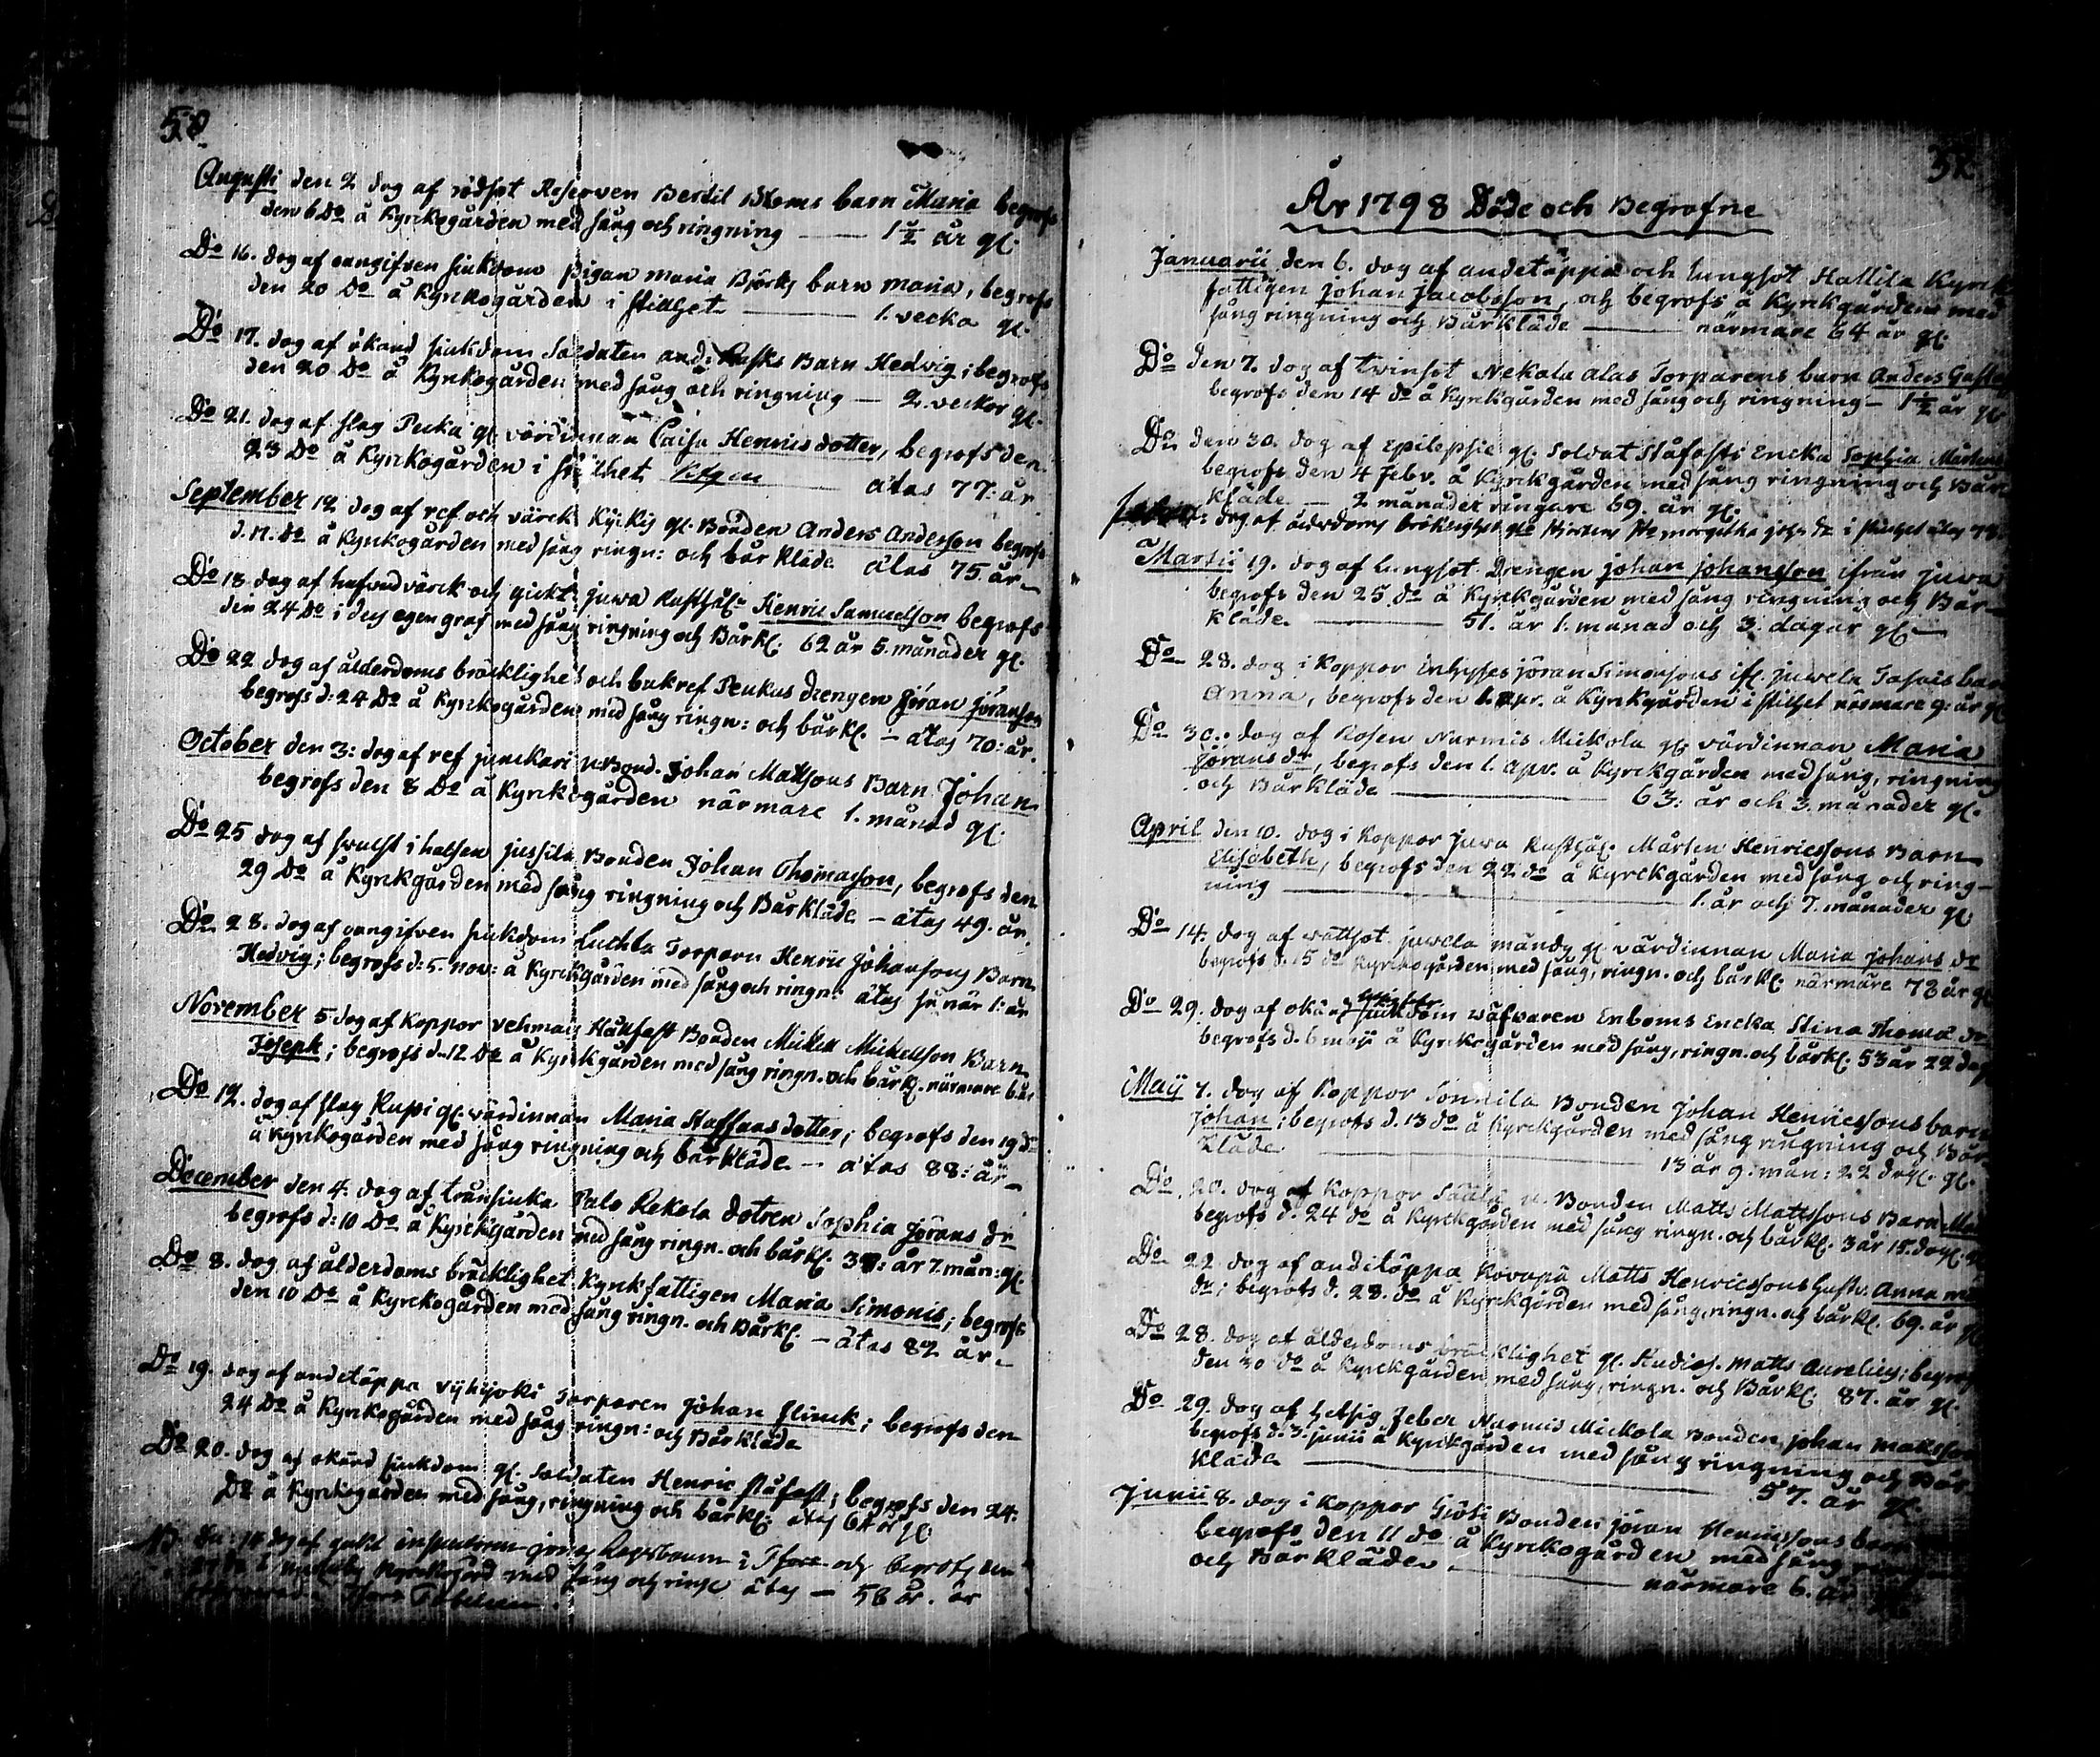 58
Augusti den 2 dog af rödsot Reserven Bertil Bloms barn Maria begrofs
den 6 Do å Kyrckogården med sång och ringning — 1½ år gl.
Do 16. dog af oangifven siukdom pigan Maria Björks barn Maria, begrofs
den 20 Do å Kyrckogården i stillhet — 1. vecka gl.
Do 17. dog af okänd siukdom Soldaten And: Rasks Barn Hedvig; begrofs
den 20 Do å Kyrkogården med sång och ringning — 2. veckor gl.
Do 21. dog af slag Peuka gl. värdinnan Caisa Henrics dotter, begrofs den
23 Do å Kyrckogården i stillhet — ätas 77: år
September 12 dog af ref och värck Kyckis gl. Bonden Anders Anderson begrofs
d. 17. Do å Kyrckogården med sång ringn: och bår kläde ätas 75. år
Do 18. dog af hufvudvärck och gickt: juwa Rusthål: Henric Samuelson begrofs
den 24 Do i des egen graf med sång ringning och Bårkl: 62 år 5. månader gl.
Do 22 dog af ålderdoms bräcklighet och bukref Peukas drengen Jöran Jöranson
begrofs d: 24 Do å Kyrckogården med sång ringn: och bårkl. — ätas 70: år.
October den 3: dog af ref junckari Bond. Johan Mattsons Barn Johan
begrofs den 8 Do å Kyrckogården närmare 1. månad gl.
Do 25 dog af swulst i halsen jussila Bonden Johan Thomasson, begrofs den
29 Do å Kyrckgården med sång ringning och Bårkläde — ätas 49. år
Do 28. dog af oangifven siukdom Luchta Torparn Henric Johansons Barn
Hedvig; begrofs d: 5. nov: å Kyrckgården med sång och ringn: ätas 1: år
November 5 dog af Koppor vehmais Bonden Mickel Mickelsson Barn
Joseph; begrofs d. 12 Do å Kyrckgården med sång ringn. och bårkl. närmare 6. år
Do 12. dog af slag Rupi gl. värdinnan Maria Staffans dotter; begrofs den 19 do
å kyrkogården med sång ringning och bårkläde — ätas 88: år
December den 4. dog af trånsiuka Palo Rekola dotren Sophia Jörans dr
begrofs d: 10 Do å Kyrckgården med sång ringn. och bårkl. år 7. mån: gl.
Do 8. dog af ålderdoms bräcklighet Kyrkfattigen Maria Simonis; begrofs
den 10 Do å Kyrckogården med sång ringn. och Bårkl. — ätas 82 år
Do 19. dog af andetäppa vyhyjoki Torparen Johan Flinck; begrofs den
24 Do å Kyrckogården med sång ringn: och Bårkläde
Do 20. dog af okänd siukdom gl. Soldaten Henric Ståfast; begrofs den 24.
Do å Kyrckogården med sång, ringning och bårkl. ätas 64 år gl.
dog af inspectoren och begrofs den
kyrckogård med sång och ringn ätas — 58 år.
År 1798 Döde och Begrofne
Januarii den 6. dog af andetäppa och lungsot Hallila Kyrck
fattigen Johan Jacobsson, och begrofs å Kyrckgården med
sång ringning och Bårkläde — närmare 64 år gl.
Do den 7. dog af twinsot Nekala alas Torparens barn Anders Gustaf
begrofs den 14 do å Kyrckgården med sång och ringning — 1½ år gl
Do den 30. dog af Epilepsie gl. Soldat Ståfasts Encka Sophia Mårtens
begrofs den 4 Febr. å Kyrckgården med sång ringning och Bår
kläde — 2 månader ringare 69. år gl.
dog af ålderdoms bräklighet i stillhet ätas
Martii 19. dog af lungsot Drengen Johan Johansson ifrån juwa
begrofs den 25 do å Kyrckgården med sång ringning och Bår-
kläde — 51. år 1. månad och 3. dagar gl.
Do 28. dog i Koppor Inhyses Jöran Simonsons ifr. juwela barn
Anna, begrofs den 1. apr. å Kyrckgården i stillhet närmare 9: år gl
Do 30. dog af Rosen Nurmis Mickola gl. värdinnan Maria
Jörans dr, begrofs den 1. apr. å Kyrckgården med sång, ringning
och Bårkläde — 63: år och 3. månader gl.
April den 10. dog i Koppor Juwa Rusthål. Mårten Henricssons Barn
Elisabeth, begrofs den 22 do å Kyrckgården med sång och ring-
ning — 1. år och 7. månader gl
Do 14. dog af wattsot juwela gl värdinnan Maria Johans dr
begrofs d. 15 do Kyrckogården med sång, ringn. och bårkl. närmare 78 år gl
Do 29. dog af okänd siukdom wäfwaren Enboms Encka Stina Thomæ dr
begrofs d. 6 maji å Kyrckogården med sång, ringn. och bårkl. 53 år 22 dag
Maij 7. dog af Koppor Bonden Johan Henricssons barn
Johan; begrofs d. 13 do å Kyrckgården med sång ringning och Bår-
kläde — 13 år 9: mån: 22 dag. gl.
Do 20. dog af Koppor Säälä Bonden Matts Mattssons Barn
begrofs d. 24 do å Kyrckgården med sång ringn. och bårkl. 3 år 15. dag. gl
Do 22 dog af andetäppa Rovapä Matts Henricssons hustr. Anna
dr; begrofs d. 28. do å Kyrckgården med sång, ringn. och bårkl. 69. år gl
Do 28. dog af ålderdoms bräcklighet gl. Studios. Matts Aurelius; begrofs
den 30 do å Kyrckgården med sång, ringn. och Bårkl. 87. år gl.
Do 29. dog af hetsig feber Nurmis Mickola Bonden Johan Mattsson
begrofs d. 3. junii å Kyrckgården med sång ringning och Bår-
kläde — 57. år gl.
Junii 8. dog i Koppor Bonden Jöran Henricssons barn
begrofs den 11 do å Kyrckogården med sång
och Bårkläde — närmare 6. år